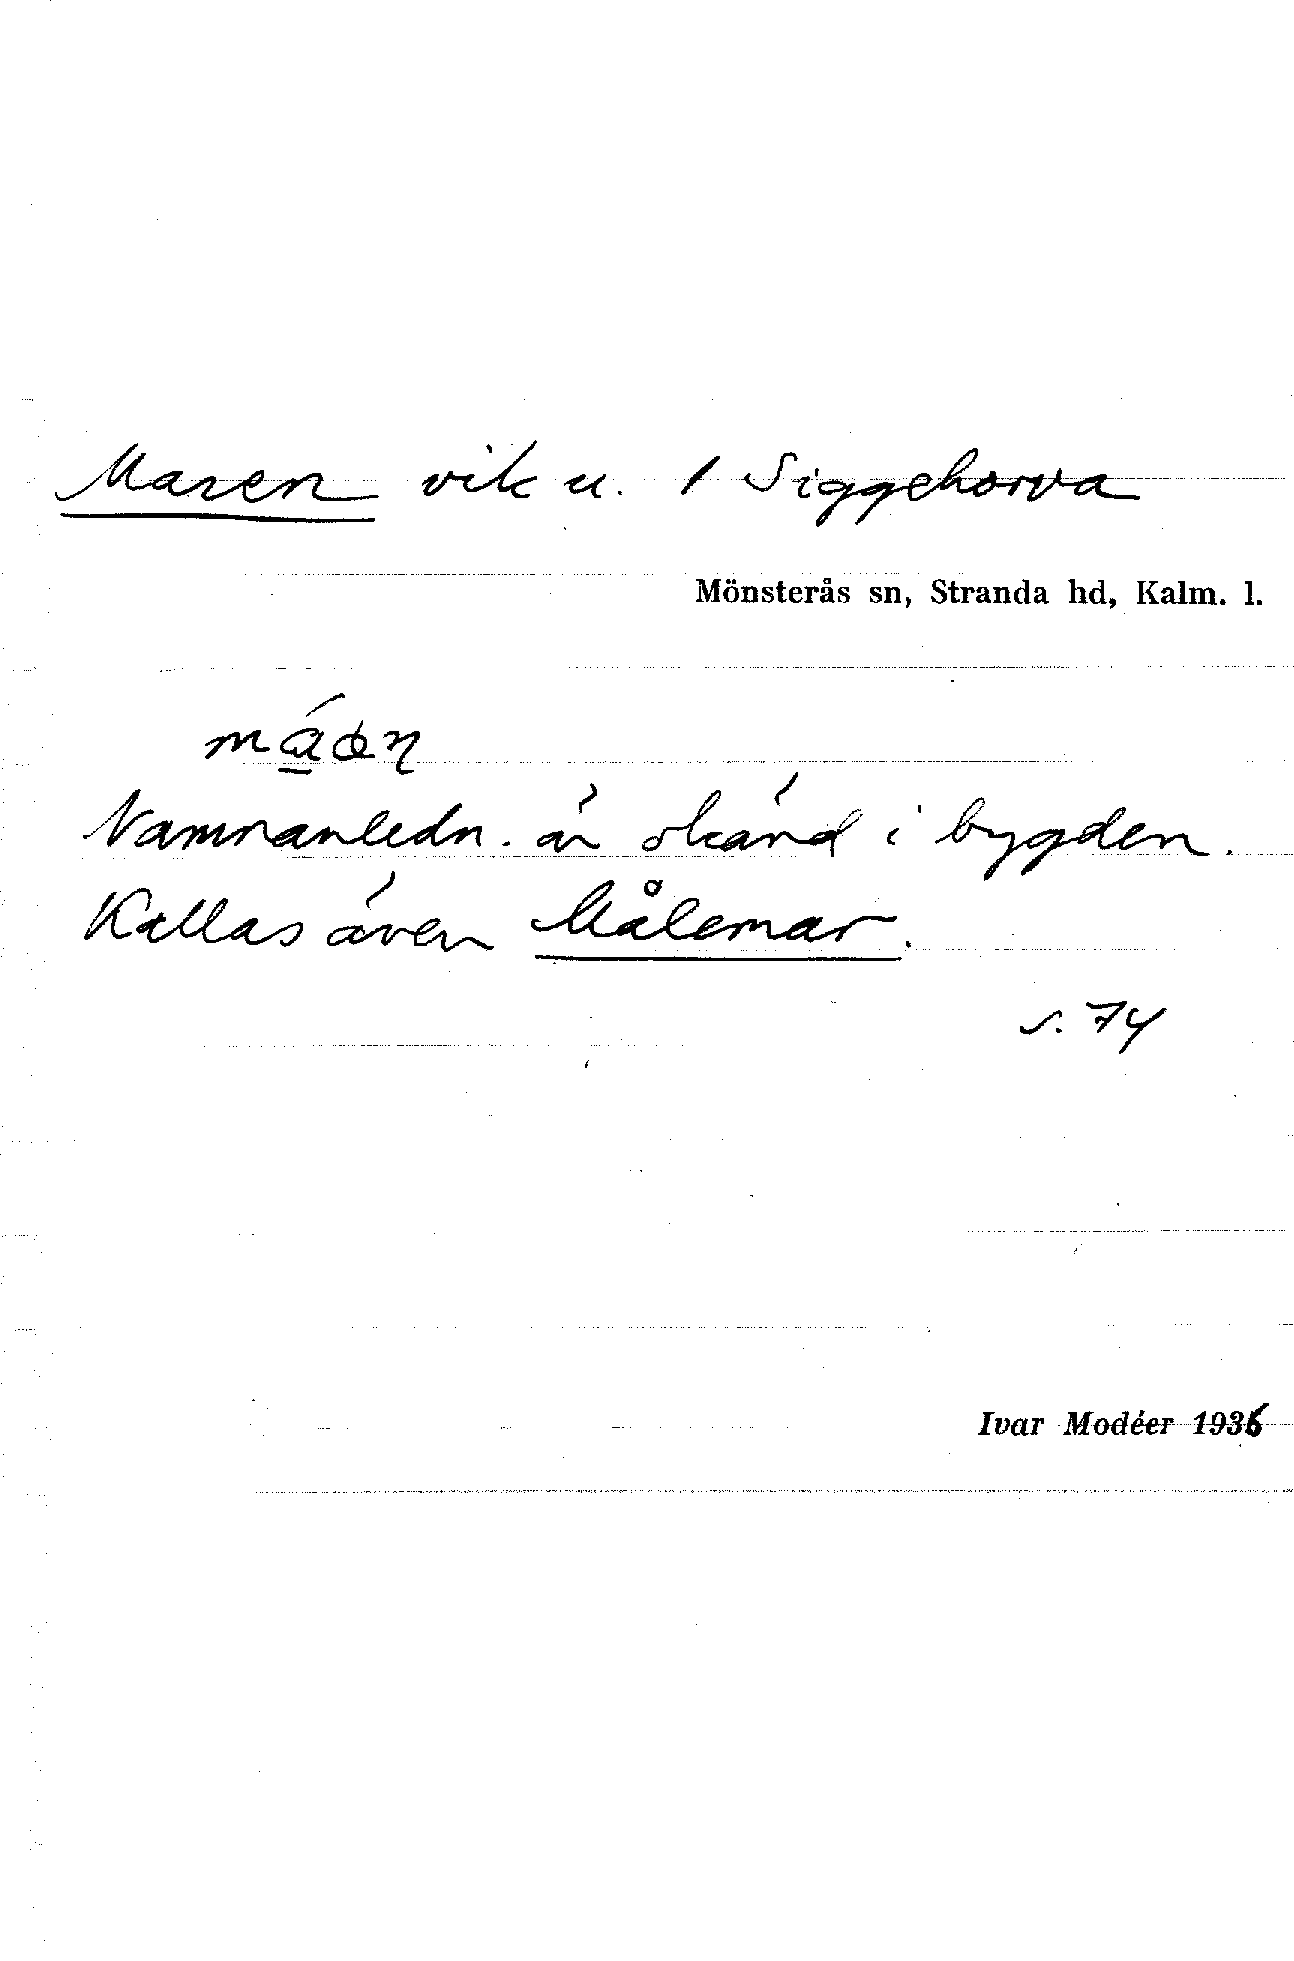 Maren vik u. 1 Siggehorva
Mönsterås sn, Stranda hd, Kalm. l.
Namnanledn. är okänd i bygden.
Kallas även Målemar.
s. 74
Ivar Modéer 1936